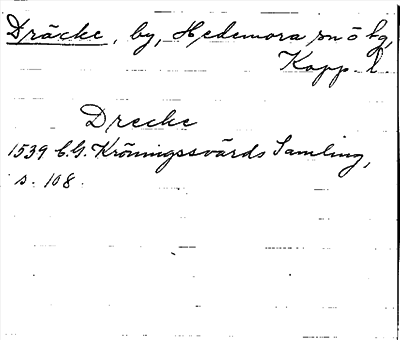 Dräcke, by, Hedemora sn o fg,
Kopp. l.
Drecke
1539 C.G. Kröningssvärds Samling,
s. 108.